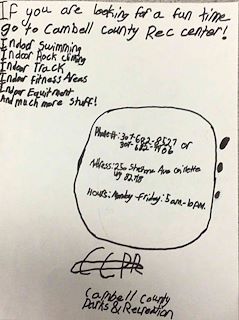 If you are looking for a fun time
go to Cambell County Rec center!
Indoor Swimming
Indoor Rock climing
Indoor Track
Indoor Fitness Areas
Indoor Equitment
And much more stuff!
or
Adress: 250 Shoshone Ave
wy
Hours: Monday-Friday: 5am-
CCPR
Cambell County
Parks & Recreation